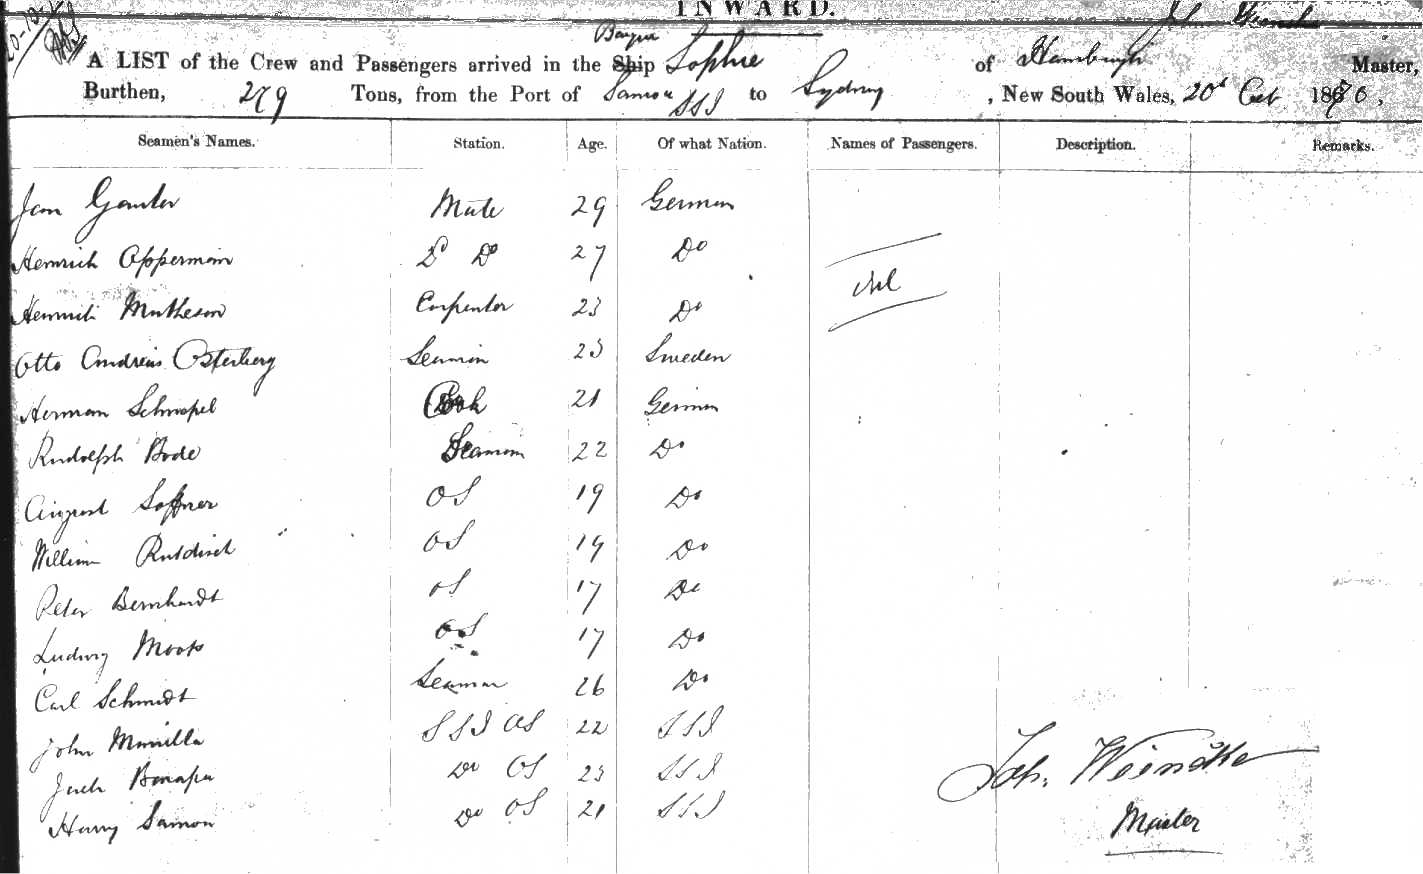 INWARD.
Barque
A LIST of the Crew and Passengers arrived in the Ship Sophie of Hamburgh Master,
Burthen, 279 Tons, from the Port of Samoa SSI to Sydney, New South Wales, 20th Oct 1876,
Seamen's Names. Station. Age. Of what Nation. Names of Passengers. Description. Remarks.
Jan Mate 29 German
Heinrich Opperman 2d Do 27 Do
Nil
Heinrich Matheson Carpenter 23 Do
Otto Andreas Osterberg Seaman 23 Sweden
Herman Schnapel Cook 21 German
Rudolph Bode Seaman 22 Do
August OS 19 Do
William OS 19 Do
Peter Bernhardt OS 17 Do
Ludwig OS 17 Do
Carl Schmidt Seaman 26 Do
John Manilla SSI OS 22 SSI
Jack Do OS 23 SSI
Harry Samoa Do OS 21 SSI
Joh.
Master